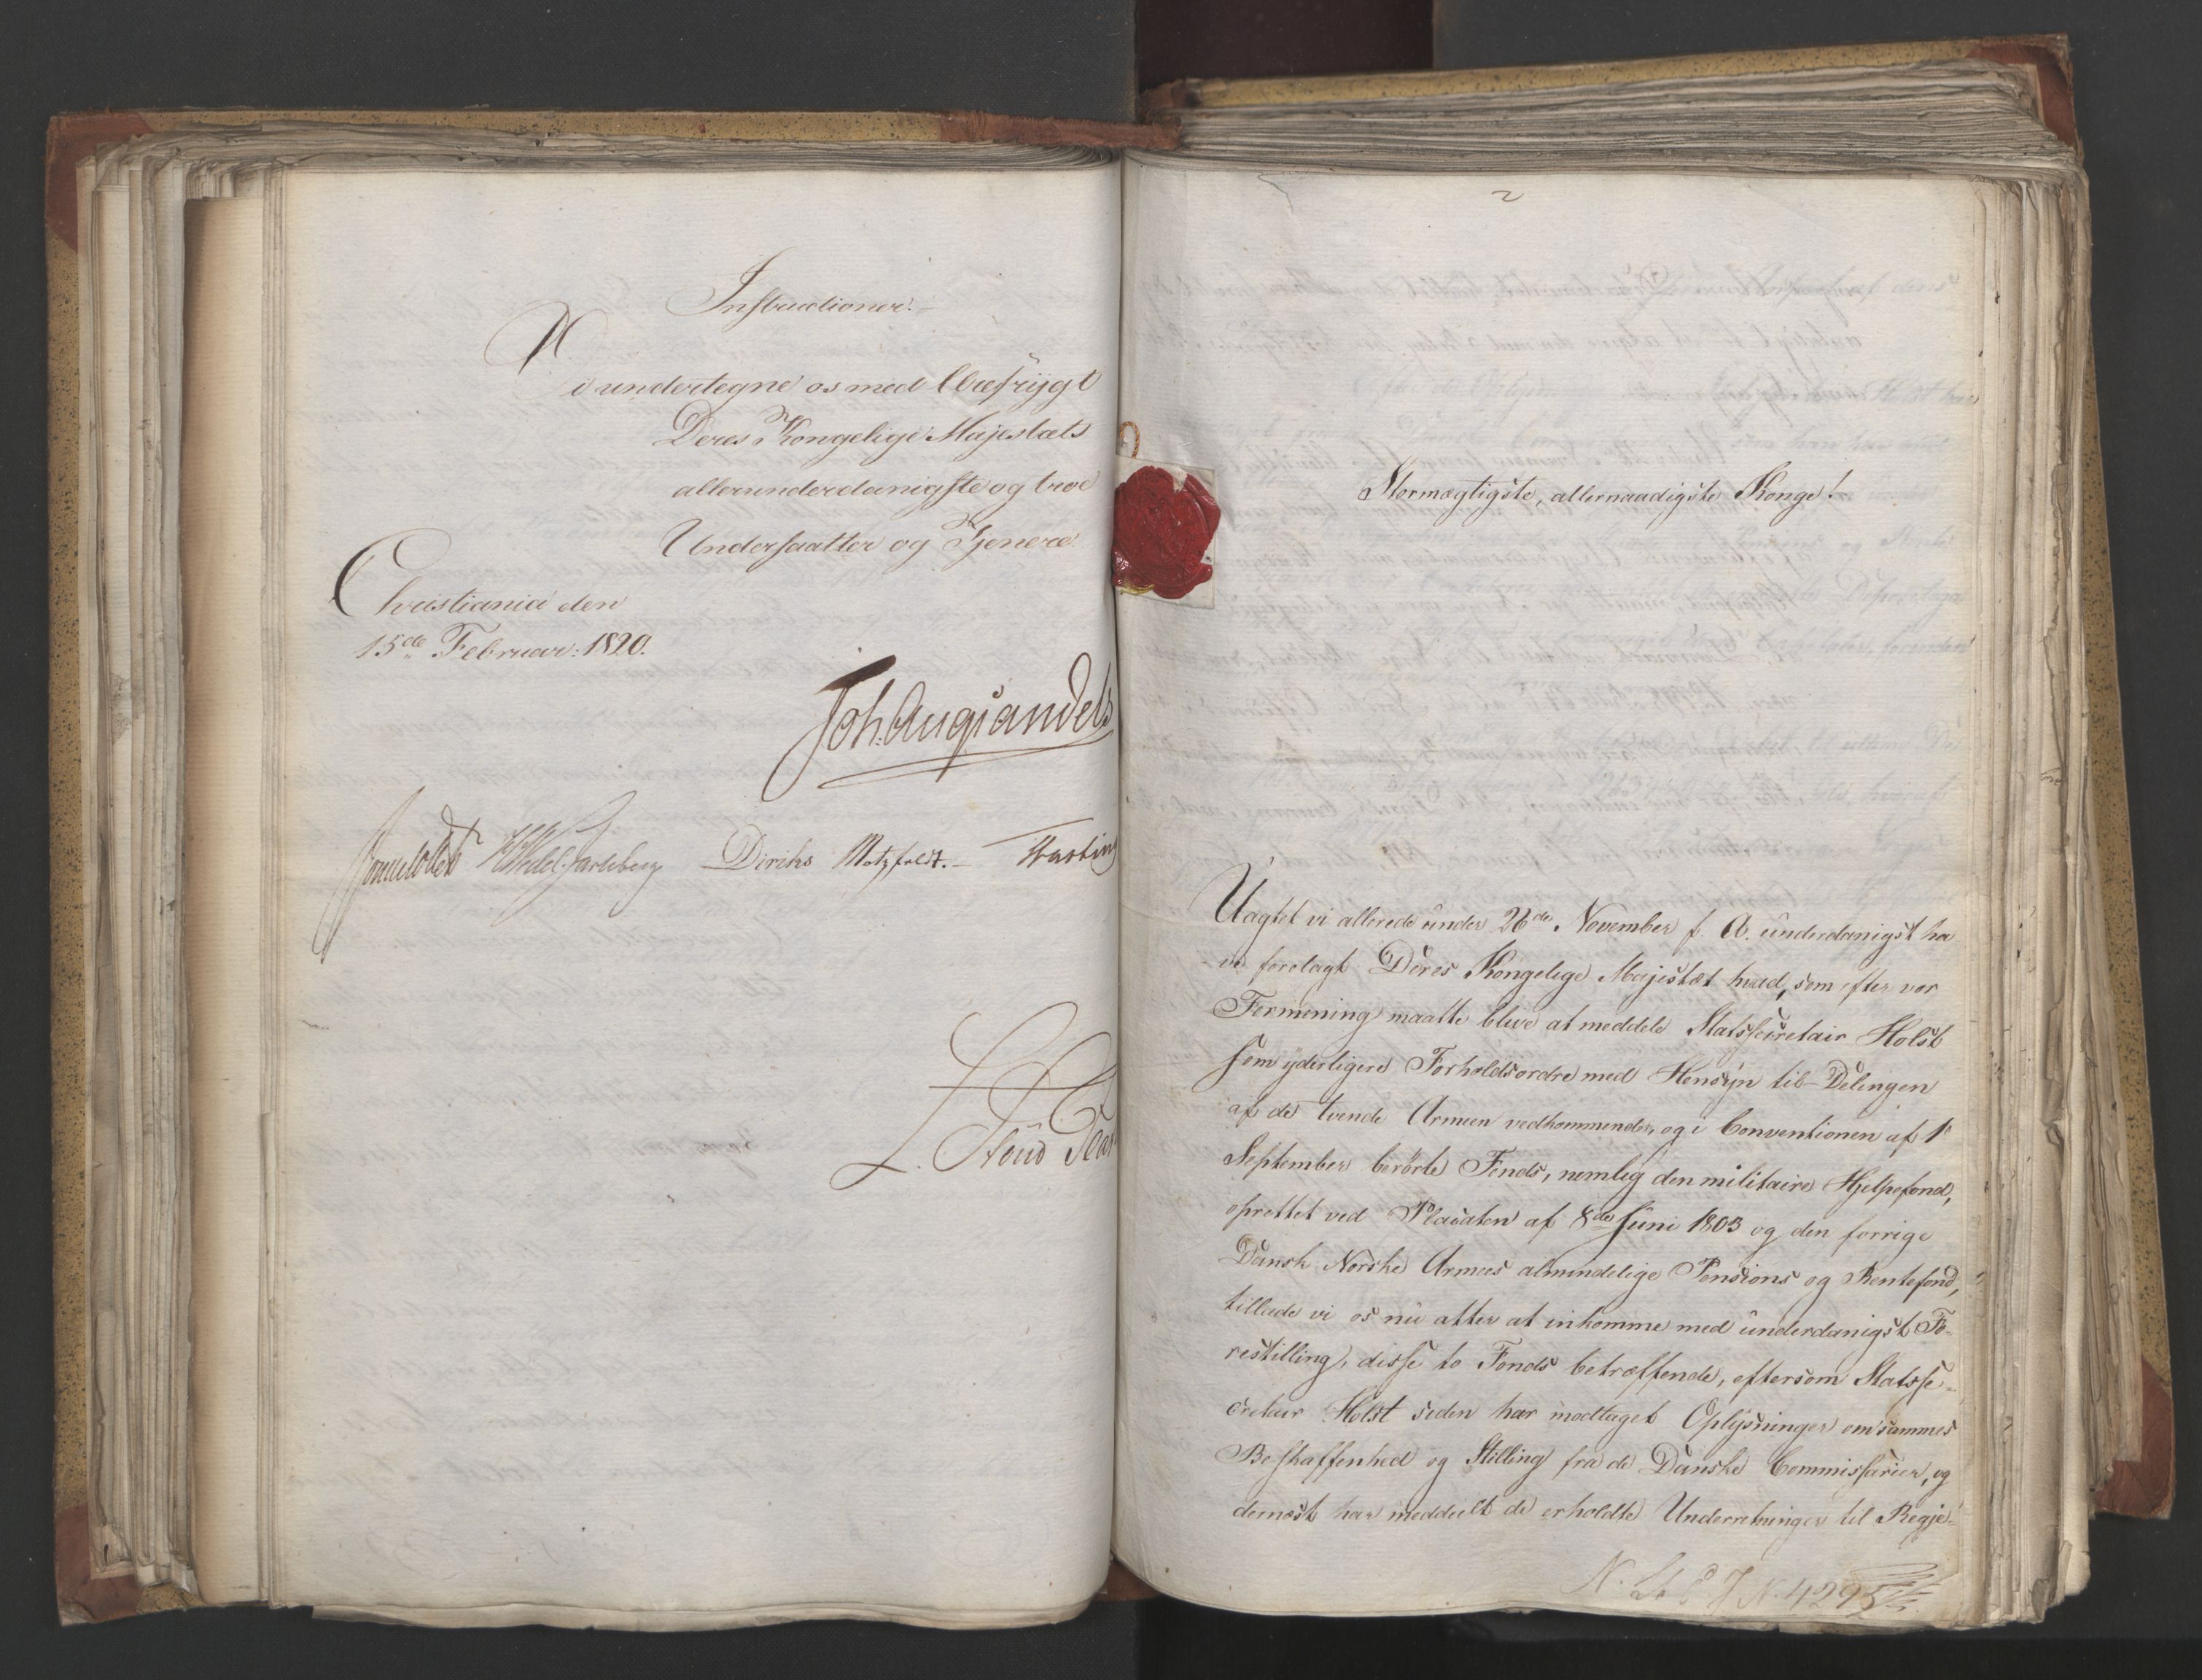 Instructioner.
Vi undertegne os med Ærefrygt
Deres Kongelige Majestæts
allerunderdanigste og troe
Undersaatter og Tjenere
Christiania den
15de Februar: 1820.
Joh. Aug. Sandels
Sommerfeldt HWedel Jarlsberg Diriks Motzfeldt. Fasting
L. Stoud Plat
2
Stormægtigste, allernaadigste Konge!
Uagtet vi allerede under 26de November f. A. underdanigst ha
ve forelagt Deres Kongelige Majestæt hvad, som efter vor
Formening maatte blive at meddele Statssecretair Holst
som yderligere Forholdsordre med Hensÿn til Delingen
af de tvende Armeen vedkommende, og i Conventionen af 1e
September berørte Fonds, nemlig den militaire Hjelpefond,
oprettet ved Placaten af 8de Juni 1803 og den forrige
Dansk-Norske Armees almindelige Pensions og Rentefond,
tillade vi os nu atter at inkomme med underdanigst Fo-
restilling, disse to Fonds betræffende, eftersom Statsse-
cretair Holst siden har modtaget Oplysninger om sammes
Beskaffenhed og Stilling fra de Danske Commissarier, og
dernæst har meddeelt de erholdte Underretninger til Regje-
N. 4295